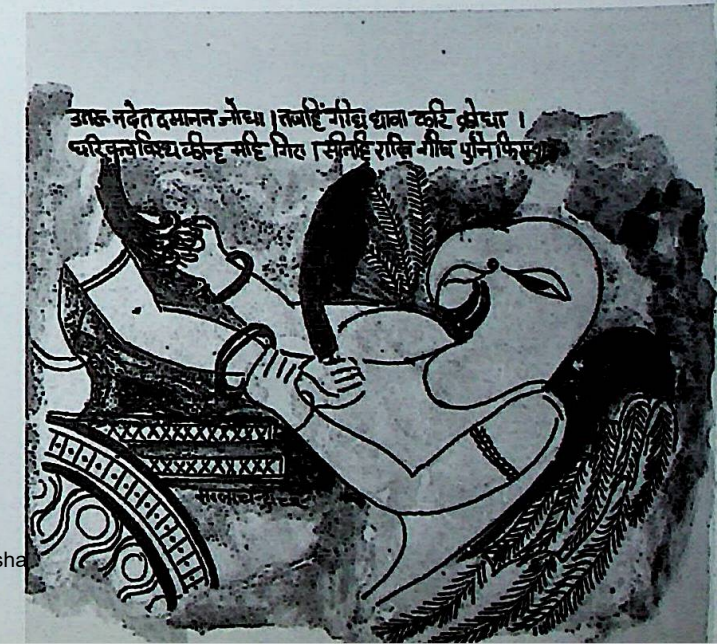 उतरु न देत दसानन जोधा । तबहिं गीध धावा करि क्रोधा ।
धरि कच बिरथ कीन्ह महि गिरा । सीतहि राखि गीध पुनि फिरा
sha